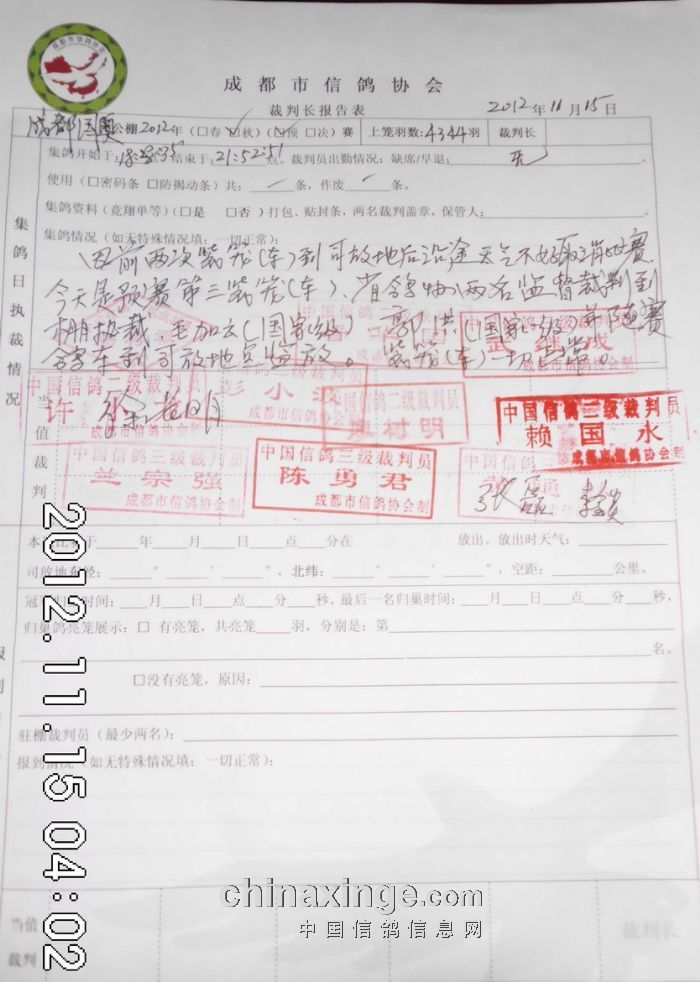 成都市信鸽协会
成都市信鸽协会
裁判长报告表
2012年11月15日
成都国奥公棚2012年(□春☑秋)(☑预□决)赛 上笼羽数:4344羽 裁判长
集鸽开始于: 结束于:21:52:51点。裁判员出勤情况:缺席/早退: 无
使用(□密码条 □防揭动条)共: 条,作废 条。
集鸽资料(竞翔单等)(□是 □否)打包、贴封条,两名裁判盖章,保管人:
集鸽日执裁情况
集鸽情况(如无特殊情况填:一切正常):
因前两次装笼(车)到司放地后沿途天气不好取消比赛
今天是预赛第三装笼(车)、省鸽协两名监督裁判到
棚执裁,毛加云(国家级) 郭洪(国家级 并随赛
鸽车到司放地点监放。装笼(车)一切正常。
武继成
中国信鸽二级裁判员
彭小波
成都市信鸽协会制
中国信鸽二级裁判员
村明
中国信鸽三级裁判员
赖国水
成都市信鸽协会制
许 明
当值裁判
中国信鸽三级裁判员
兰宗强
成都市信鸽协会制
中国信鸽三级裁判员
陈勇君
成都市信鸽协会制
中国信鸽三级裁判员
成都市信鸽协会制
本 于 年 月 日 点 分在 放出。放出时天气:
司放地东经: ° ′ ″,北纬: ° ′ ″,空距: 公里。
冠 时间: 月 日 点 分 秒,最后一名归巢时间: 月 日 点 分 秒,
归巢鸽亮笼展示:□有亮笼,共亮笼 羽,分别是:第
名。
□没有亮笼,原因:
驻棚裁判员(最少两名):
报到情况(如无特殊情况填:一切正常):
2012.11.15 04:02
chinaxinge.com
中国信鸽信息网
当值裁判
裁判长